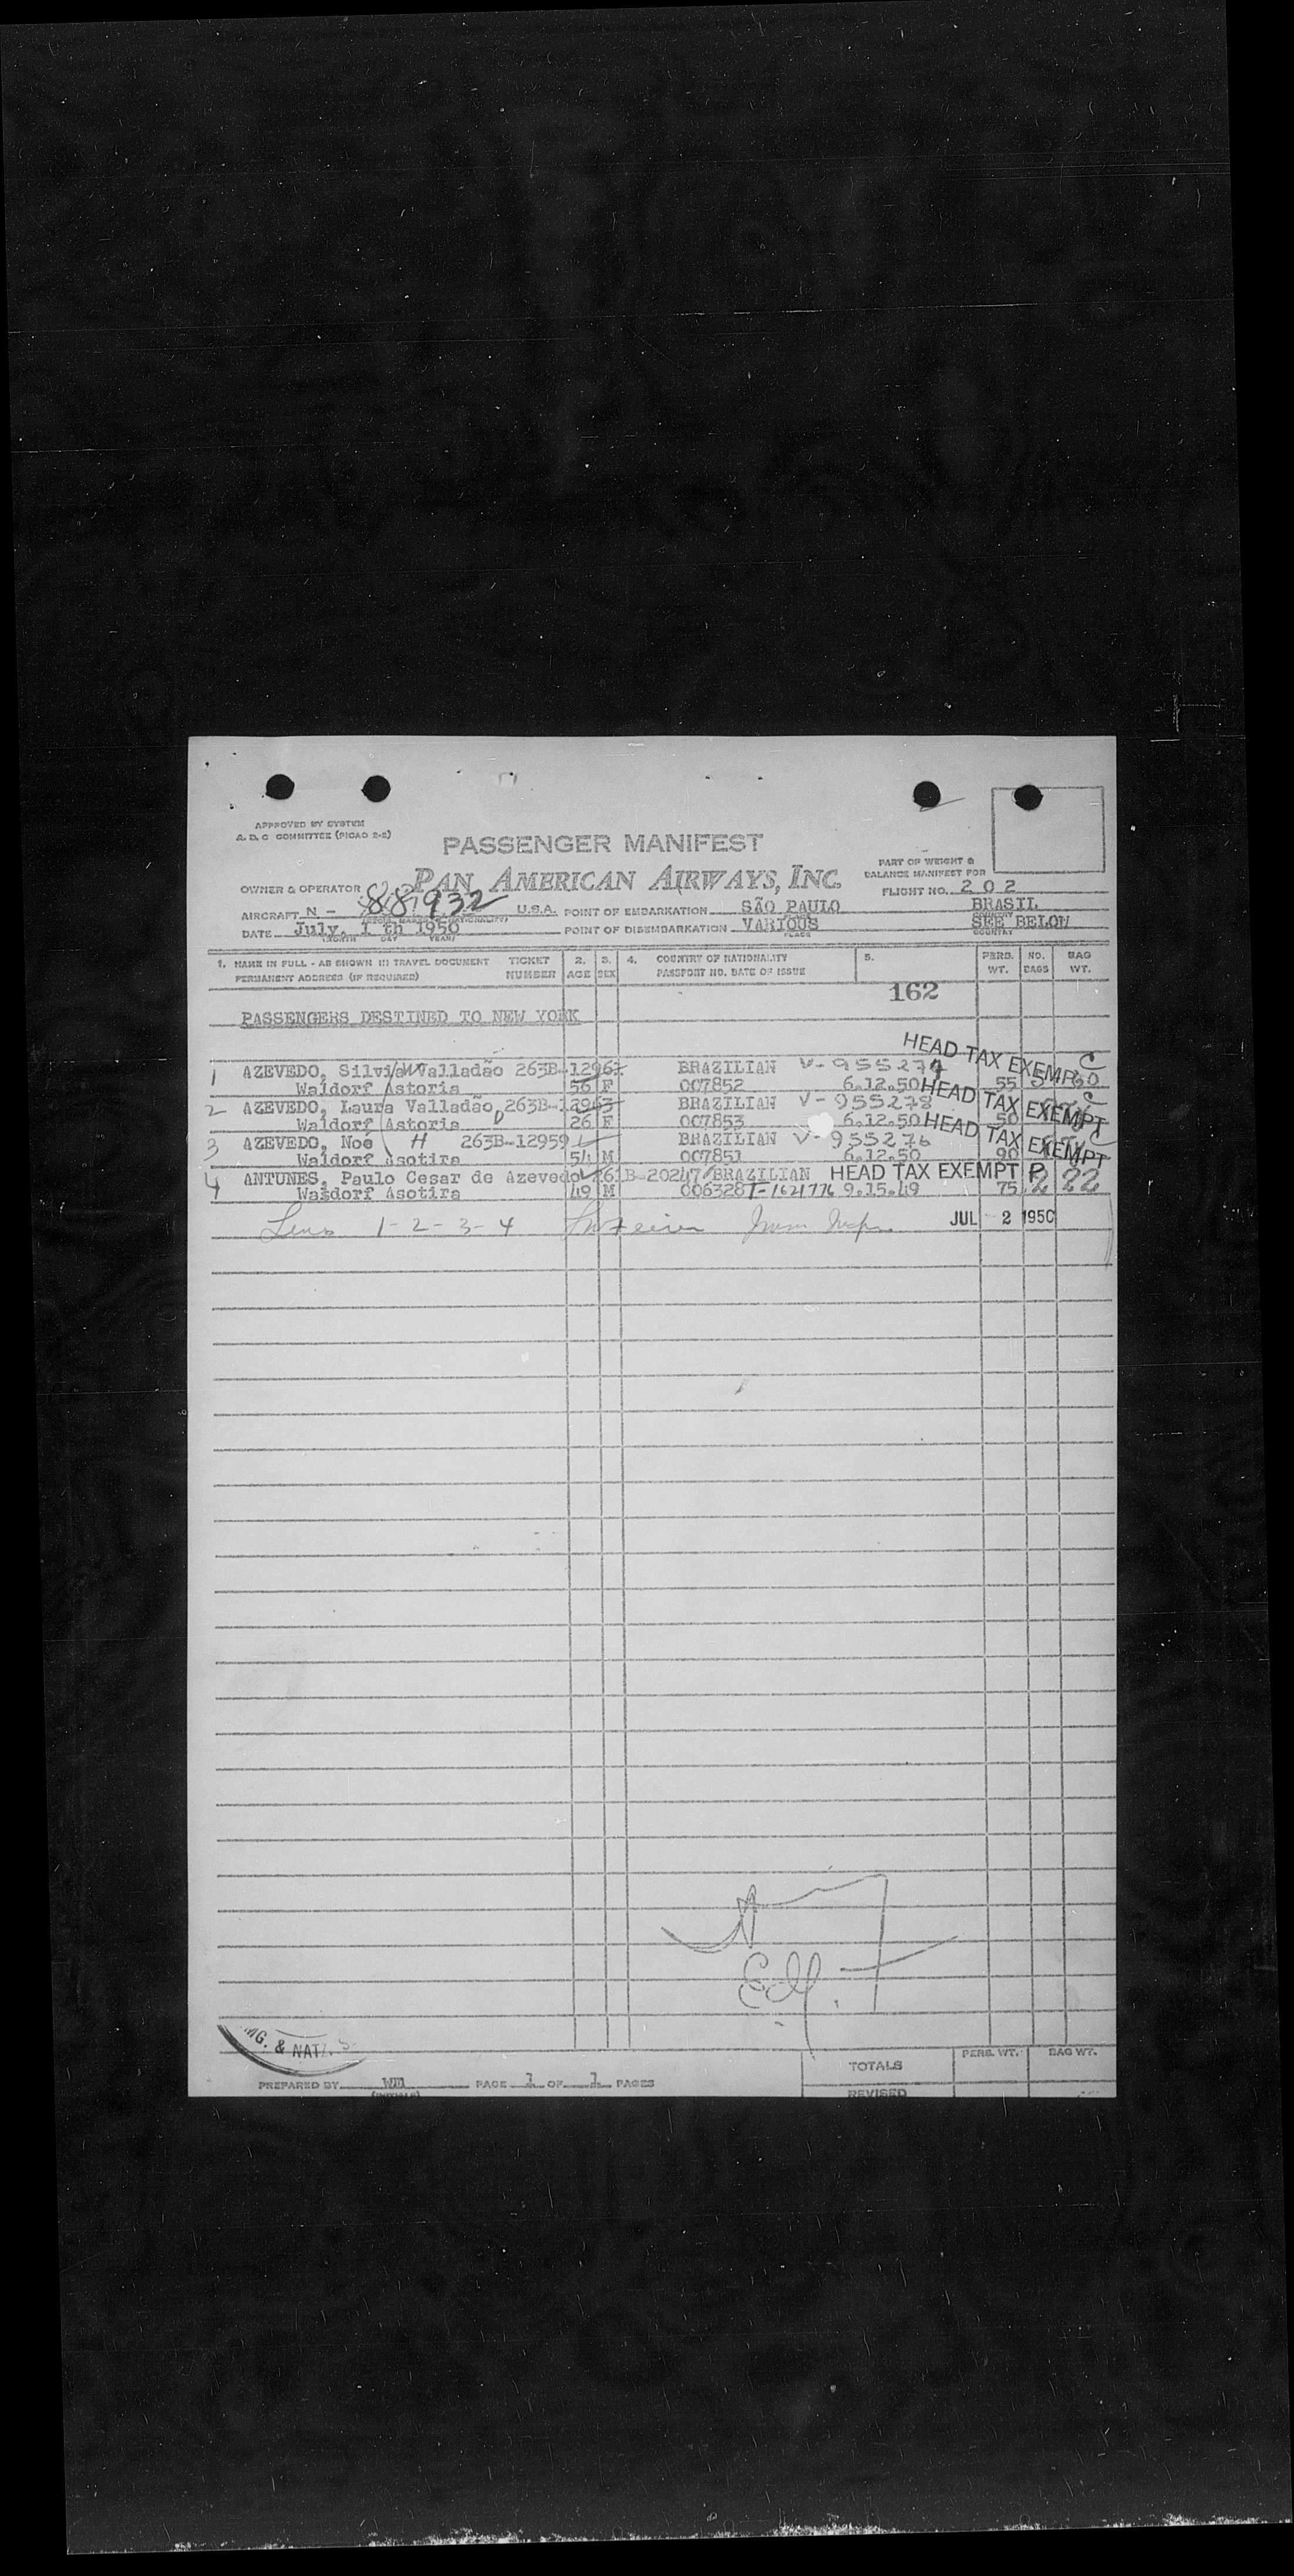 APPROVED BY SYSTEM
A. D. C COMMITTEE (PICAO 2-2)
PASSENGER MANIFEST
PART OF WEIGHT &
BALANCE MANIFEST FOR
OWNER & OPERATOR PAN AMERICAN AIRWAYS, INC. FLIGHT NO. 202
AIRCRAFT N - 88932 U.S.A. POINT OF EMBARKATION SÃO PAULO BRASIL
PLACE COUNTRY
DATE July, 1 th 1950 POINT OF DISEMBARKATION VARIOUS SEE BELOW
(MONTH DAY YEAR) PLACE COUNTRY
1. NAME IN FULL - AS SHOWN IN TRAVEL DOCUMENT TICKET 2. 3. 4. COUNTRY OF NATIONALITY 5. PERS. NO. BAG
PERMANENT ADDRESS (IF REQUIRED) NUMBER AGE SEX PASSPORT NO. DATE OF ISSUE WT. BAGS WT.
162
PASSENGERS DESTINED TO NEW YORK
HEAD TAX EXEMPT C
1 AZEVEDO, Silvia Valladão 263B-12962 BRAZILIAN V-955274
Waldorf Astoria 56 F 007852 6.12.50 55
HEAD TAX EXEMPT
2 AZEVEDO, Laura Valladão 263B-12963 BRAZILIAN V-955278
Waldorf Astoria 26 F 007853 6.12.50 50
HEAD TAX EXEMPT
3 AZEVEDO, Noé H 263B-12959 BRAZILIAN V-955276
Waldorf Asotira 54 M 007851 6.12.50 90
4 ANTUNES, Paulo Cesar de Azevedo 261B-20247 BRAZILIAN HEAD TAX EXEMPT
Waldorf Asotira 49 M 006328 T-1621776 9.15.49 75 2 22
1-2-3-4 JUL - 2 1950
& NAT
TOTALS PERS. WT. BAG WT.
PREPARED BY PAGE 1 OF 1 PAGES
(INITIALS) REVISED